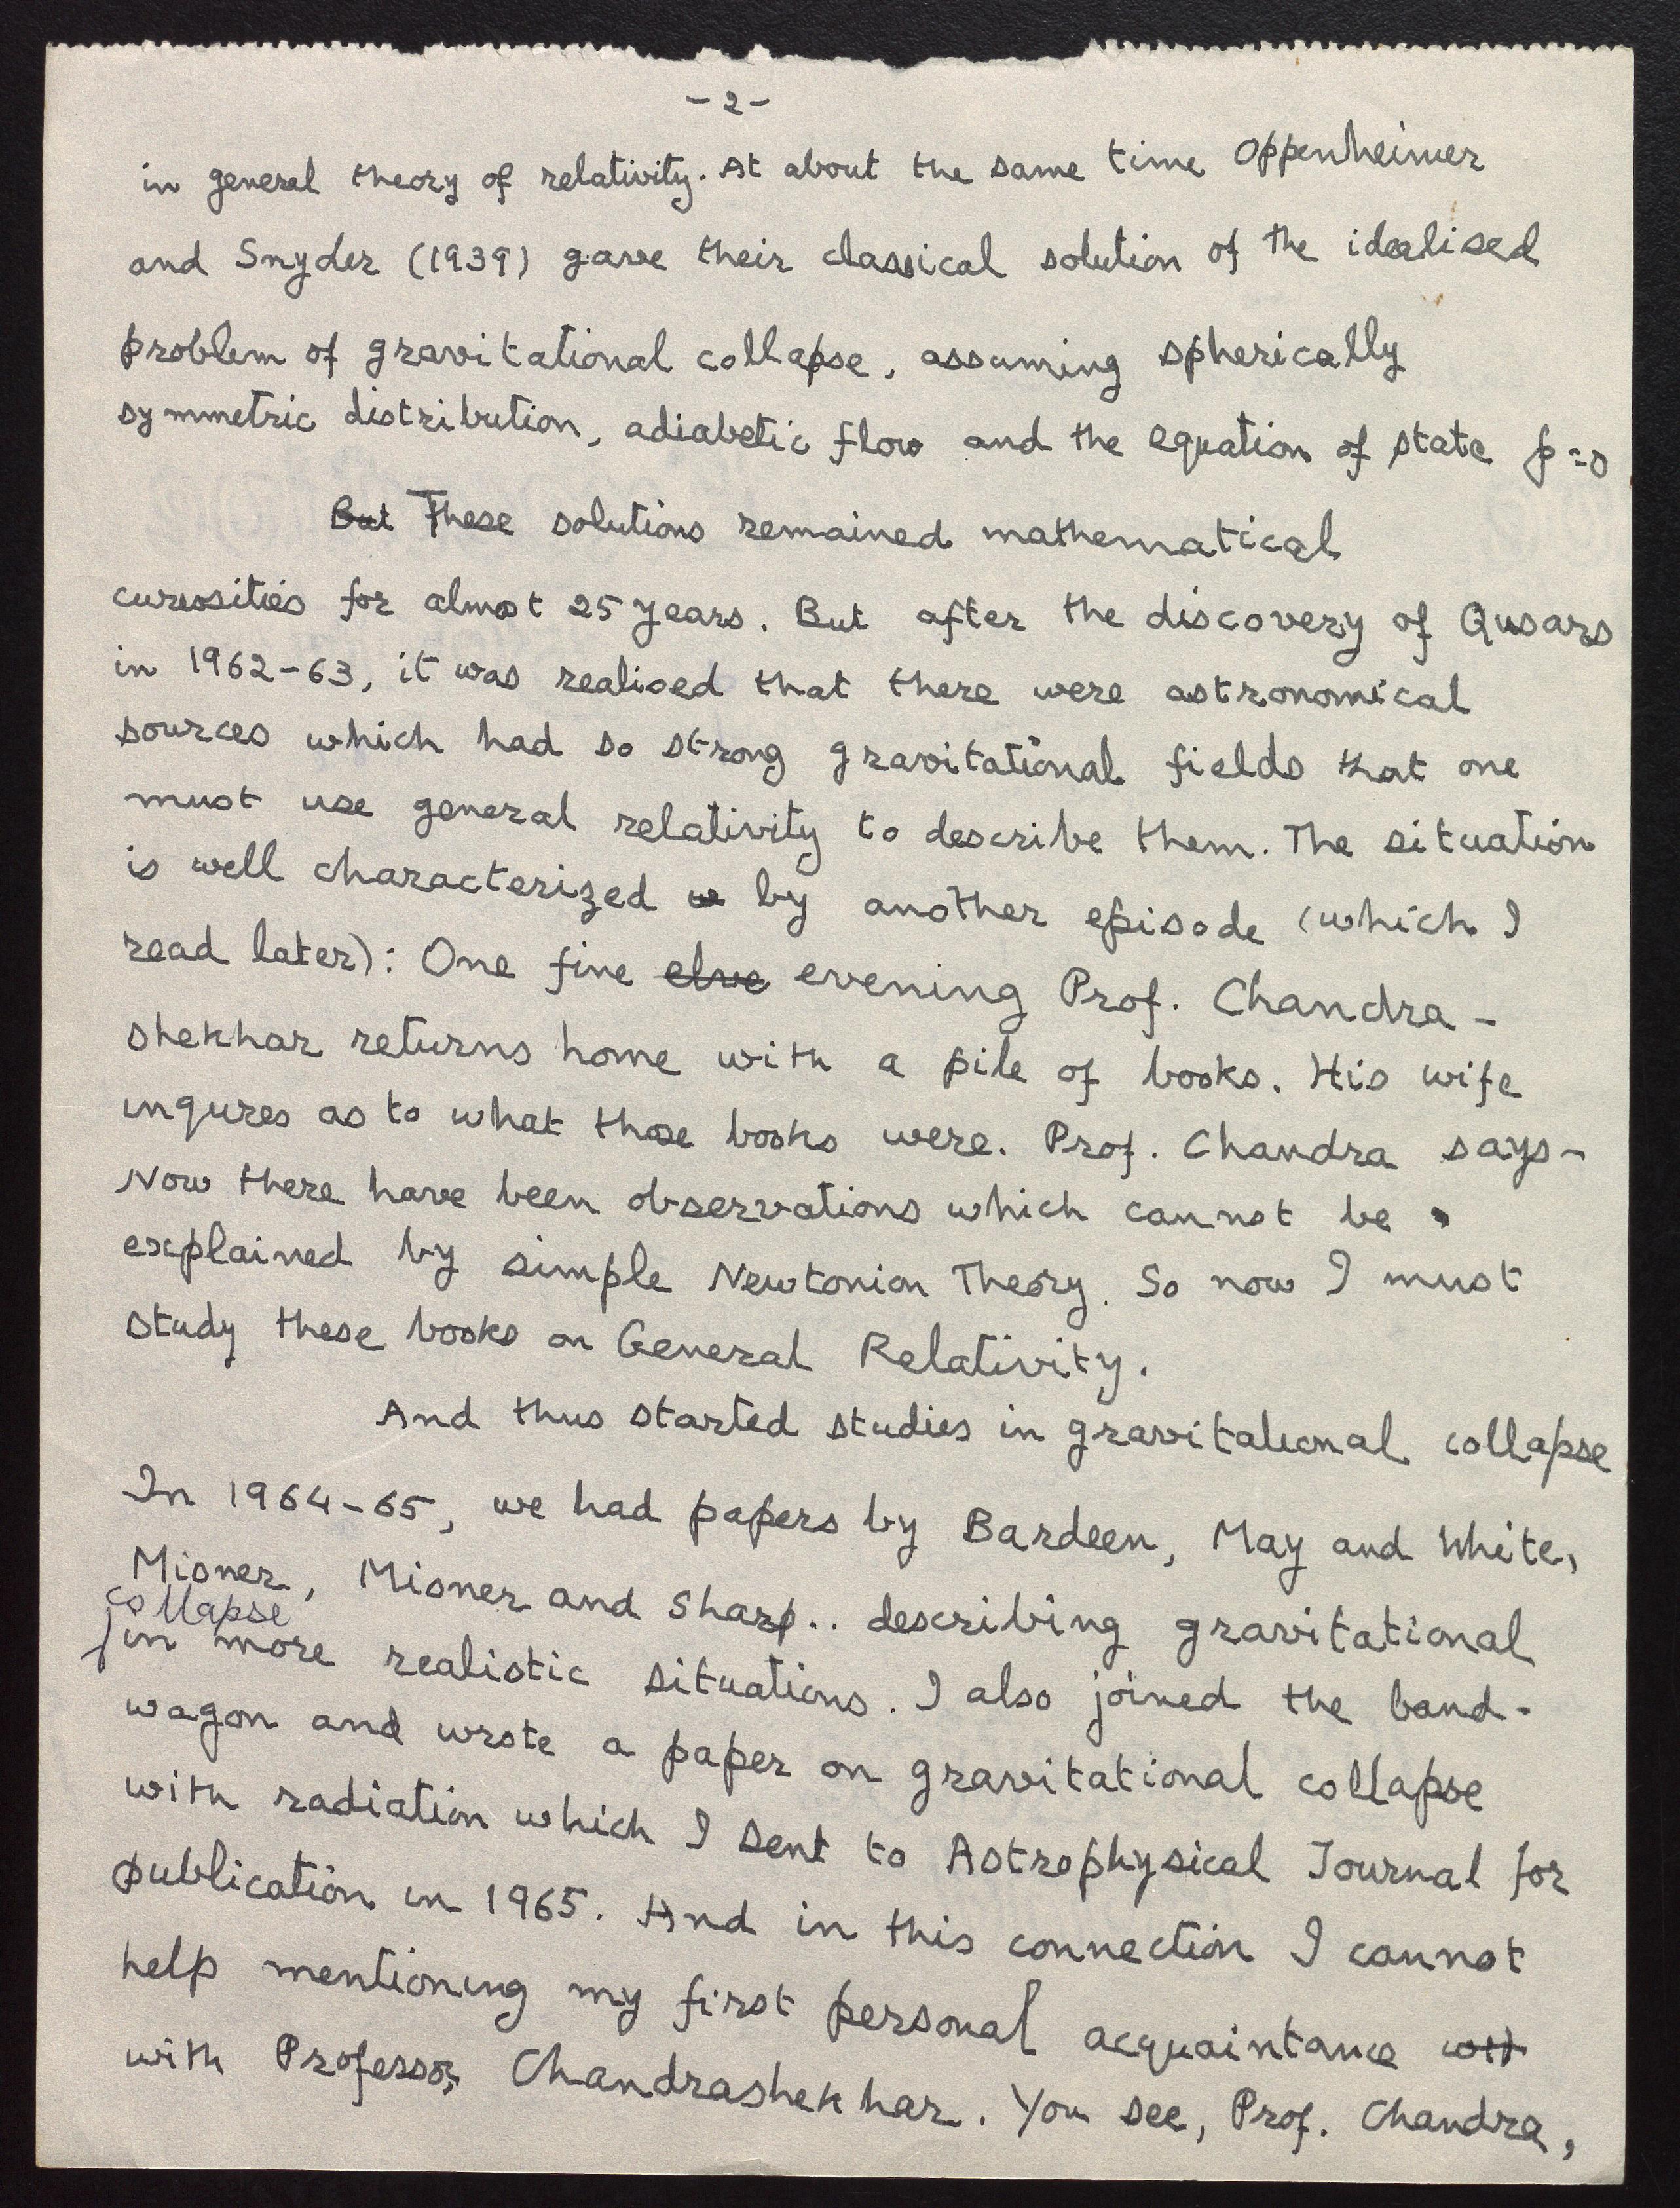 - 2 -
in general theory of relativity. At about the same time Oppenheimer
and Snyder (1939) gave their classical solution of the idealised
problem of gravitational collapse, assuming spherically
symmetric distribution, adiabetic flow and the equation of state p=0
But These solutions remained mathematical
curiosities for almost 25 years. But after the discovery of Qusars
in 1962-63, it was realised that there were astronomical
sources which had so strong gravitational fields that one
must use general relativity to describe them. The situation
is well characterized by another episode (which I
read later): One fine evening Prof. Chandra-
shekhar returns home with a pile of books. His wife
inqures as to what those books were. Prof. Chandra says-
Now there have been observations which cannot be
explained by simple Newtonian Theory. So now I must
study these books on General Relativity.
And thus started studies in gravitational collapse
In 1964-65, we had papers by Bardeen, May and White,
Misner, Misner and Sharp.. describing gravitational
collapse
in more realistic situations. I also joined the band-
wagon and wrote a paper on gravitational collapse
with radiation which I sent to Astrophysical Journal for
publication in 1965. And in this connection I cannot
help mentioning my first personal acquaintance wit
with Professor Chandrashekhar. You see, Prof. Chandra,